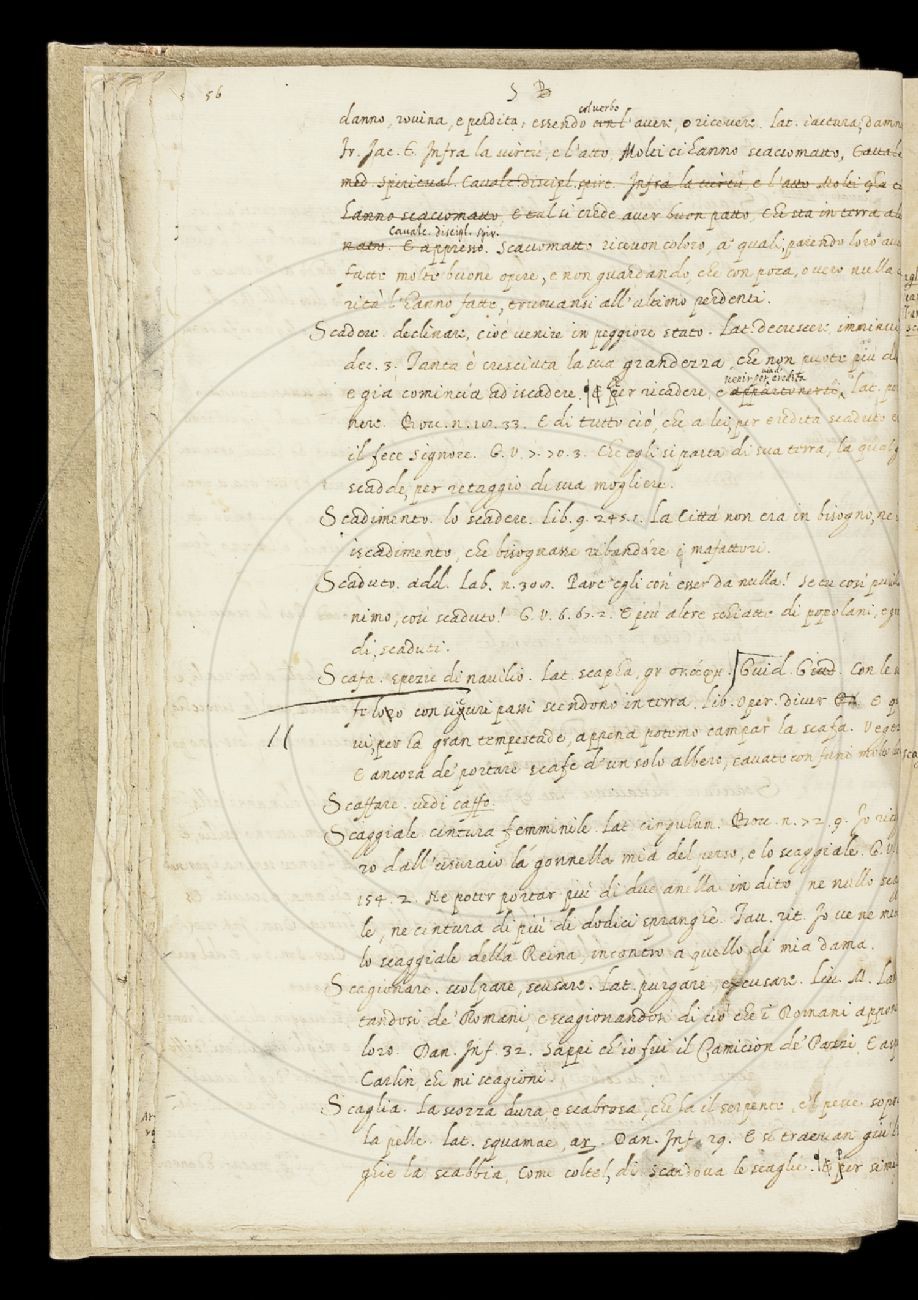 56
S B
col verbo
danno, rovina, e perdita, essendo con l'aver, o ricever. Lat. iactura, damn
Fr. Jac. T. Infra la virtù, e l'atto, Molti ci hanno scaccomatto, Cavalc
med. Spiritual. Cavalc. discipl. spir. Infra la virtù, e l'atto Molti gla
hanno scaccomatto, E tal si crede aver buon patto, Che sta in terra
Cavalc. discipl. spir.
nato. E appresso. Scaccomatto ricevon coloro, a' quali, parendo loro
fatto molte buone opere, e non guardando, che con poca, o vero nulla
rità l'hanno fatte, truovansi all'ultimo perdenti.
Scadere. declinare, cioè venire in peggiore stato. Lat. decrescere, imminui
dec. 3. Tanta è cresciuta la sua grandezza, che non puote più
venir per eredità
e già comincia ad iscadere. ¶ E per ricadere, e appartenersi, Lat. per
nere. Bocc. n. 33. E di tutto ciò, che a lei per eredità scaduto
il fece signore. G. V. 7. 70. 3. Che egli si parta di sua terra, la qual
scadde, per retaggio di sua mogliere.
Scadimento. lo scadere. Lib. 9. 245. 1. La Città non era in bisogno, ne
iscadimento, che bisognasse ribandire i malfattori.
Scaduto. add. Lab. n. 30. Parti egli così esser da nulla! Se tu così
nimo, così scaduto! G. V. 6. 2. E più altre schiatte di popolani,
di, scaduti.
Scafa. spezie di navilio. Lat. scapha, gr. σκάφη. Guid. Giud. Con le
fe loro con siguri passi scendono in terra. Lib. Oper. diver. E
vi, per la gran tempestade, appena potemo campar la scafa. Veget
11
E ancora de' portare scafe d'un solo albero, cavate con funi
Scaffare. vedi caffo.
Scaggiale. cintura femminile. Lat. cingulum. Bocc. n. 72. 9. Io
ro dall'usuraio la gonnella mia del perso, e lo scaggiale. G. V.
154. 2. Ne poter portar più di due anella in dito, ne nullo
le, ne cintura di più di dodici spranghe. Tav. rit. Io ve ne
lo scaggiale della Reina, incontro a quello di mia dama.
Scagionare. scolpare, scusare. Lat. purgare, excusare. Liv. M.
tandosi de' Romani, e scagionandosi di ciò che i Romani appon
loro. Dan. Inf. 32. Sappi ch'io fui il Camicion de' Pazzi, E
Carlin, che mi scagioni.
Scaglia. La scorza dura, e scabrosa, che ha il serpente, e 'l pesce sopra
la pelle. Lat. squamae, ar. Dan. Inf. 29. E sì traevan giù
ghie la scabbia, Come coltel, di Scardova le scaglie. ¶ E per